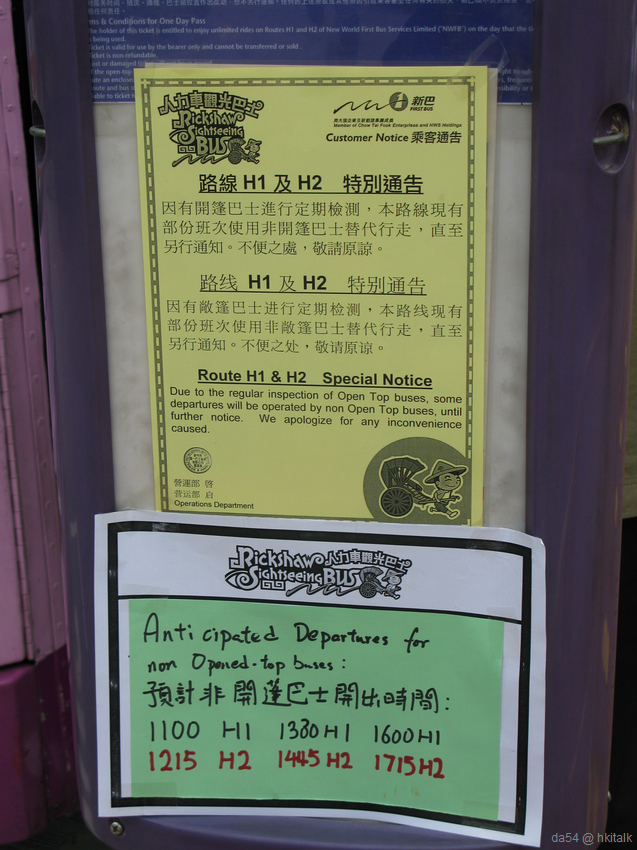 ms & Conditions for One Day Pass
The holder of this ticket is entitled to enjoy unlimited rides on Routes H1 and H2 of New World First Bus Services Limited ("NWFB") on the day that the
is being used.
Ticket is valid for use by the bearer only and cannot be transferred or sold.
Ticket is non-refundable.
人力車觀光巴士
Rickshaw
Sightseeing
BUS
新巴
FIRST BUS
周大福企業及新創建集團成員
Member of Chow Tai Fook Enterprises and NWS Holdings
Customer Notice 乘客通告
路線 H1 及 H2 特別通告
因有開篷巴士進行定期檢測，本路線現有
部份班次使用非開篷巴士替代行走，直至
另行通知。不便之處，敬請原諒。
路线 H1 及 H2 特别通告
因有敞篷巴士进行定期检测，本路线现有
部份班次使用非敞篷巴士替代行走，直至
另行通知。不便之处，敬请原谅。
Route H1 & H2 Special Notice
Due to the regular inspection of Open Top buses, some
departures will be operated by non Open Top buses, until
further notice. We apologize for any inconvenience
caused.
營運部 啓
营运部 启
Operations Department
Rickshaw 人力車觀光巴士
Sightseeing BUS
Anticipated Departures for
non Opened-top buses:
預計非開蓬巴士開出時間:
1100 H1 1330 H1 1600 H1
1215 H2 1445 H2 1715 H2
da54 @ hkitalk